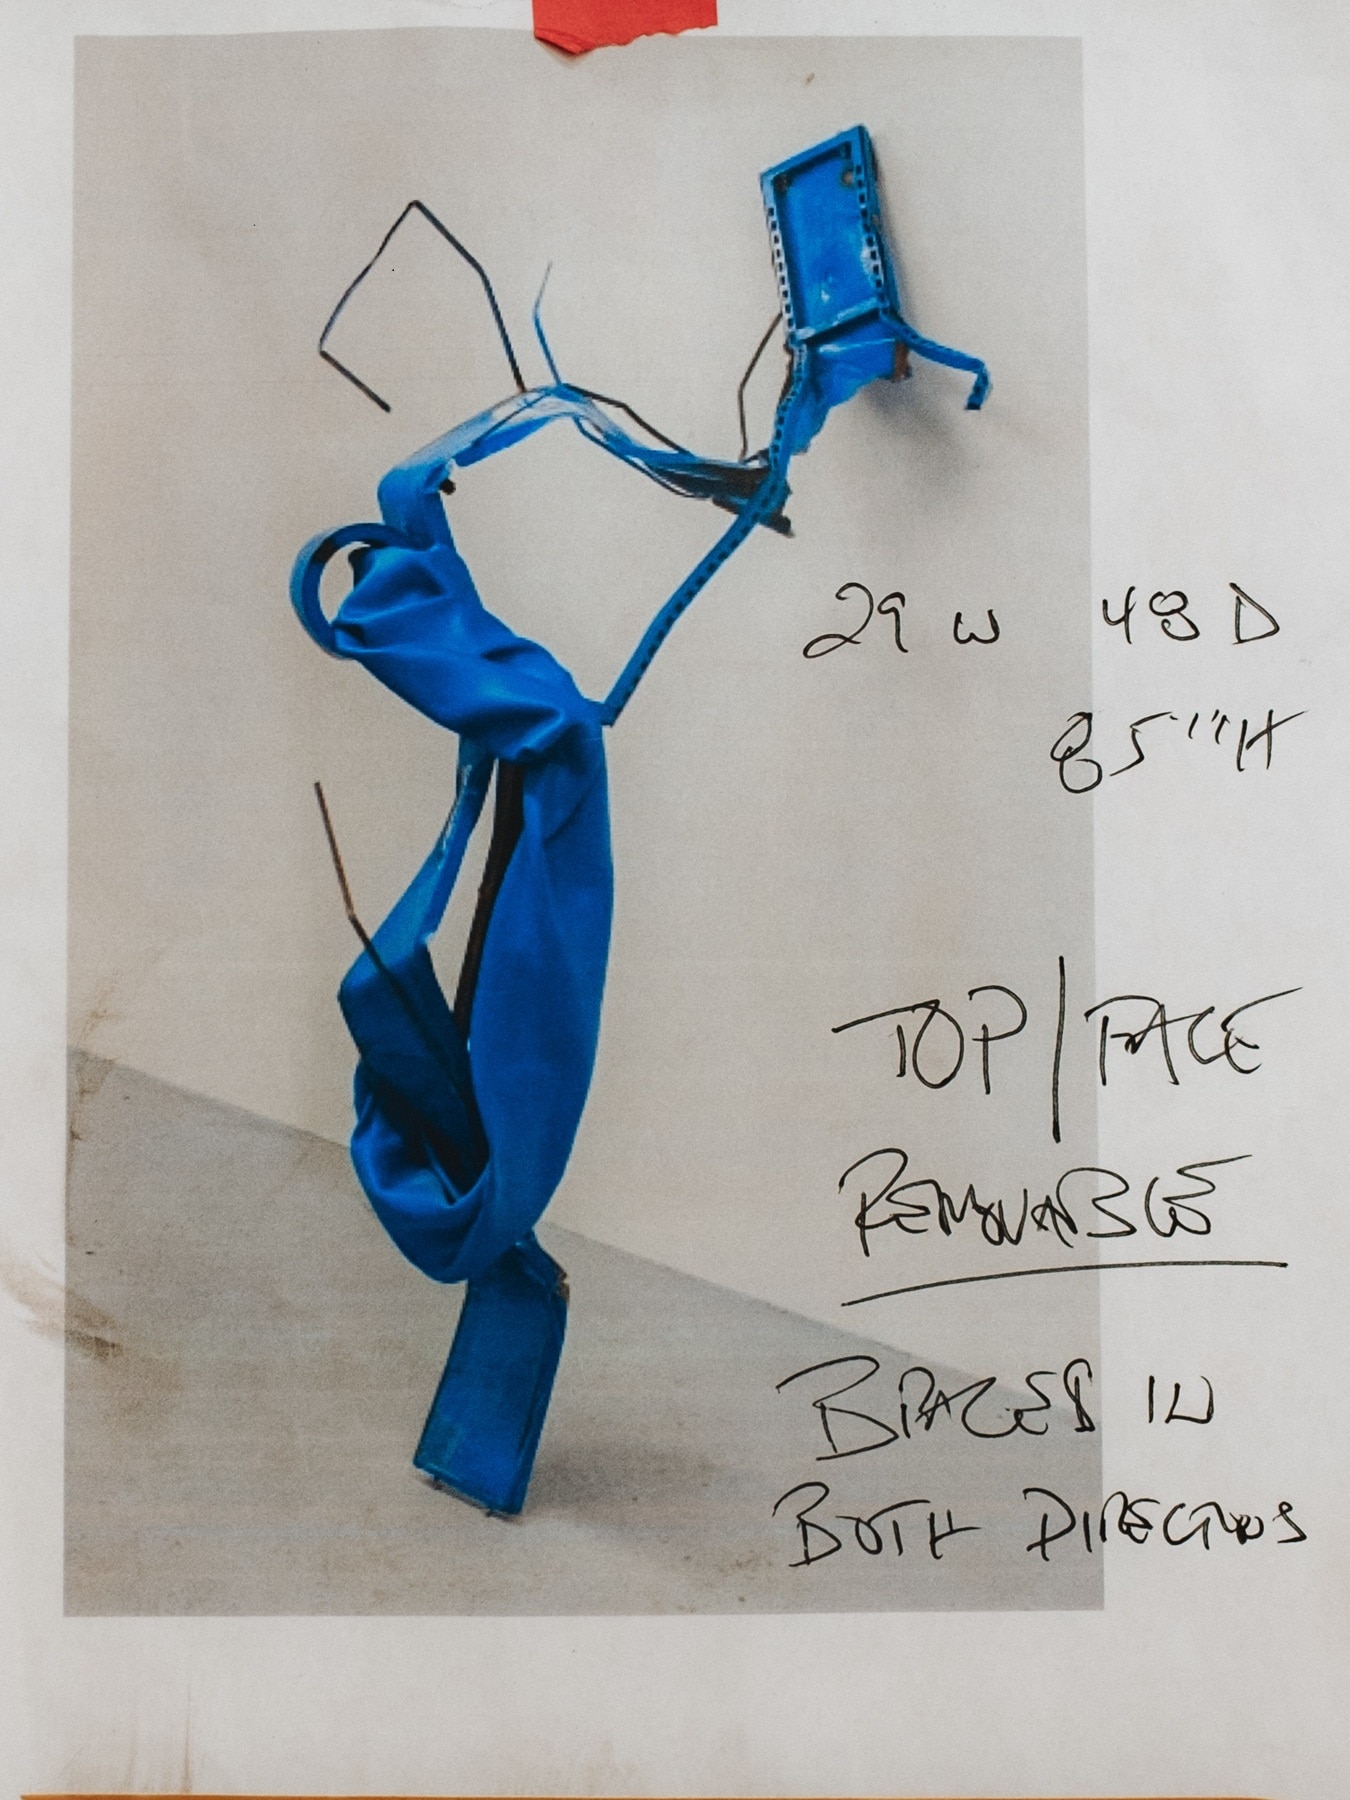 29 W 48 D
85" H
TOP/FACE
REMOVABLE
BRACES IN
BOTH DIRECTIONS